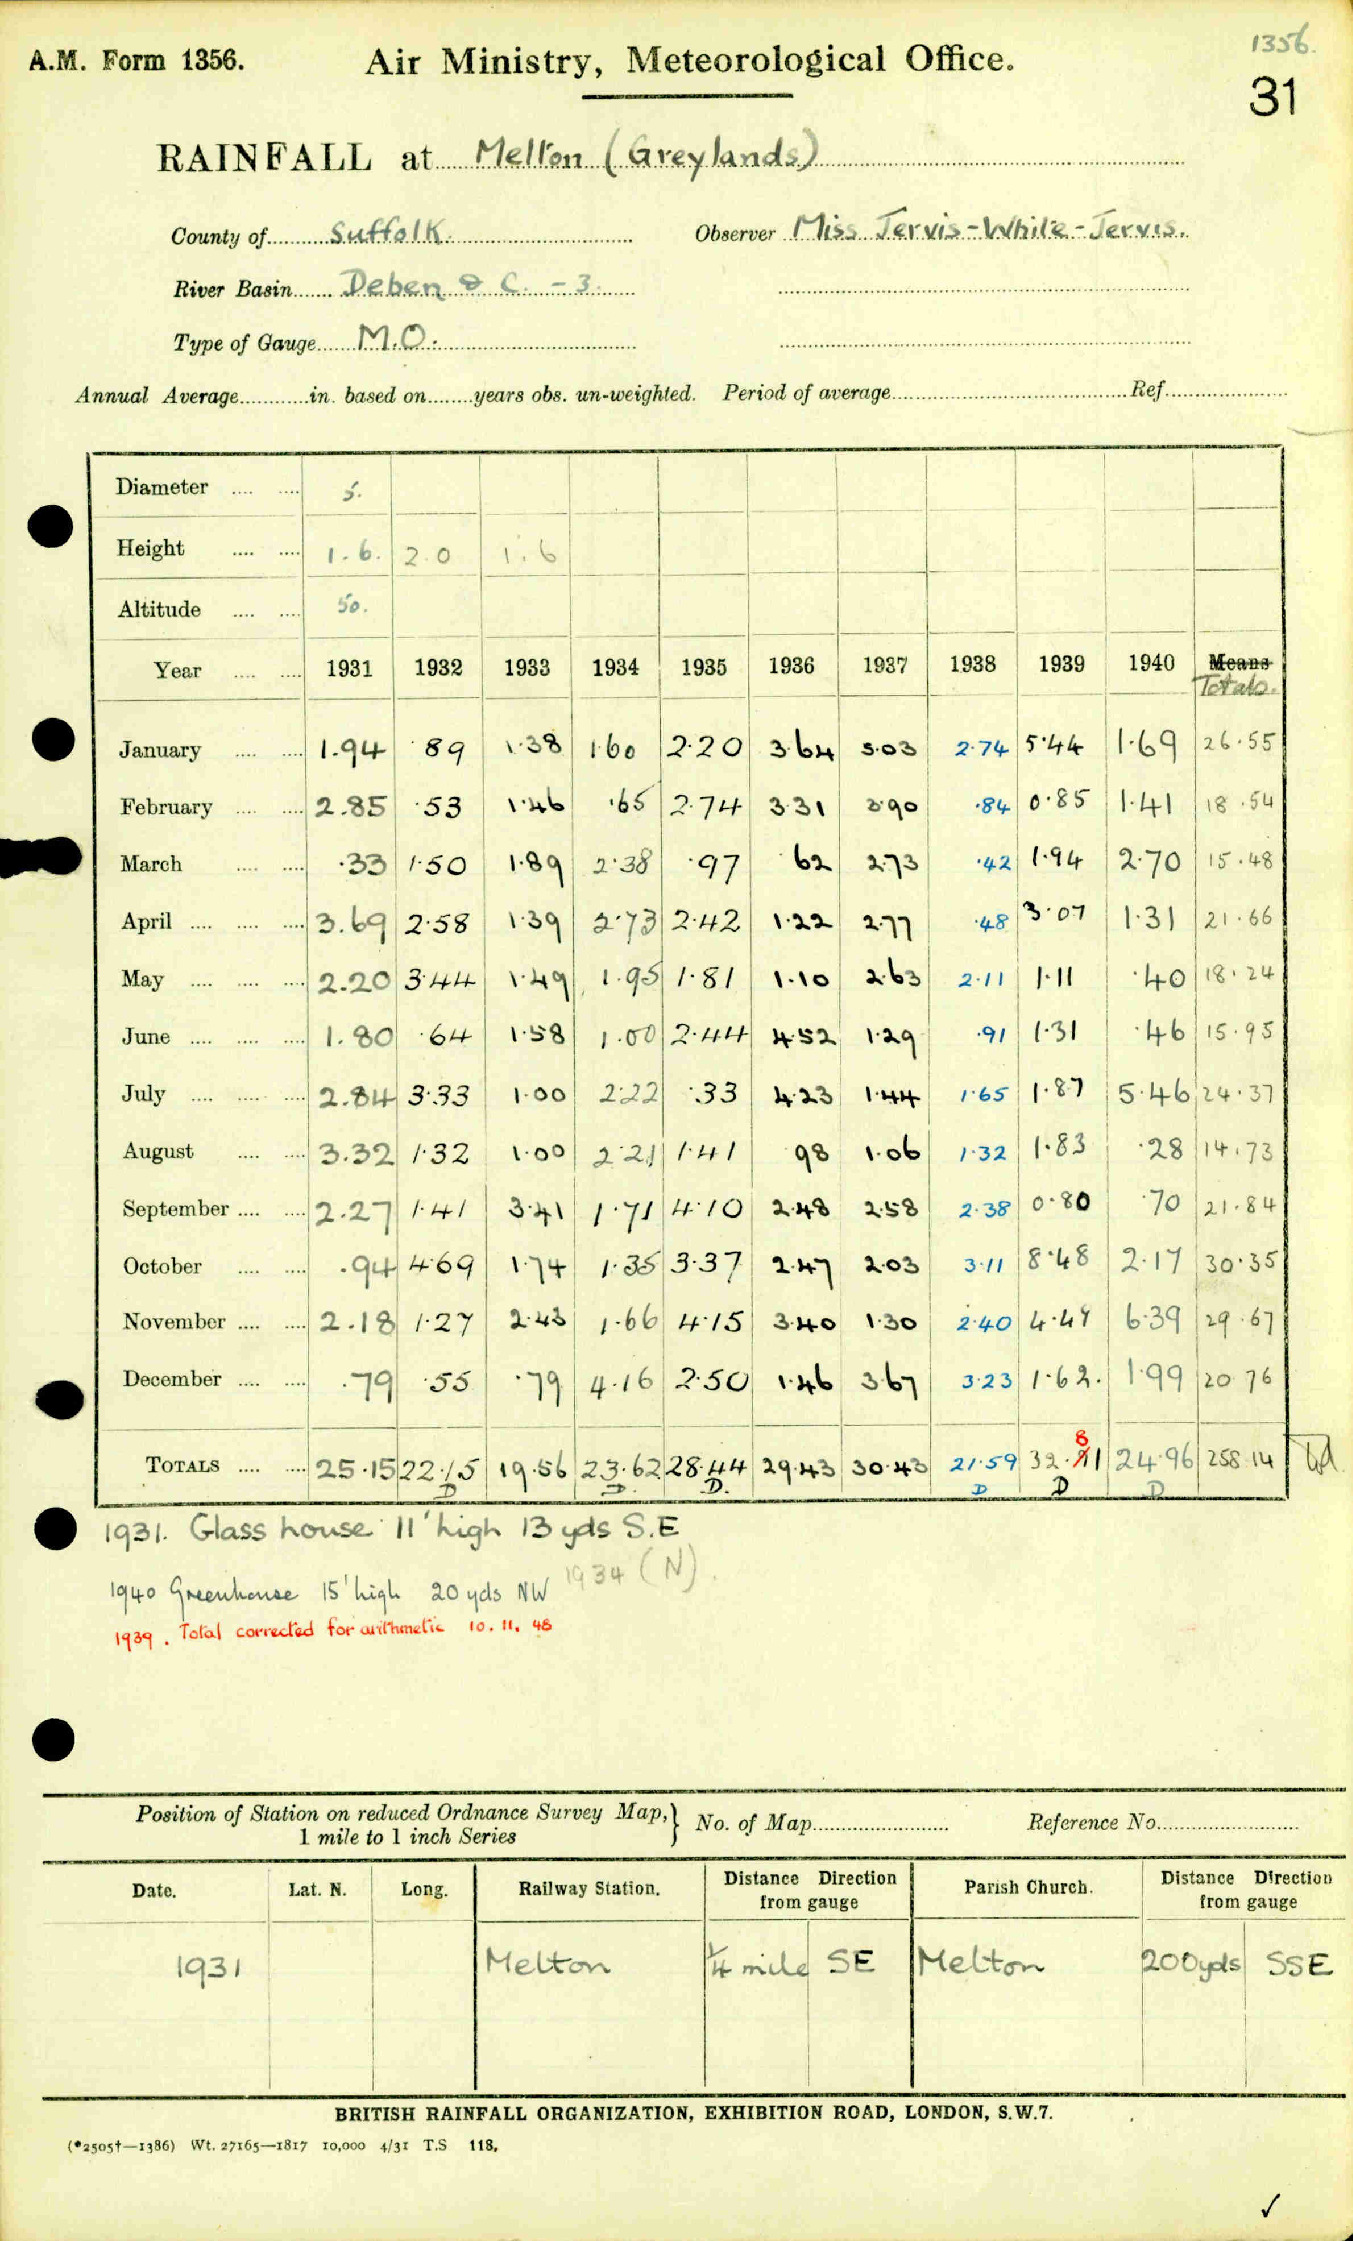 1356.
A.M. Form 1356. Air Ministry, Meteorological Office.
31
RAINFALL at Melton (Greylands)
County of Suffolk. Observer Miss Jervis-White-Jervis.
River Basin Deben & C. - 3.
Type of Gauge M.O.
Annual Average in. based on years obs. un-weighted. Period of average Ref.
Diameter 5.
Height 1.6. 2.0 1.6
Altitude 50.
Year 1931 1932 1933 1934 1935 1936 1937 1938 1939 1940 Means
Totals.
January 1.94 89 1.38 1.60 2.20 3.64 5.03 2.74 5.44 1.69 26.55
February 2.85 .53 1.46 .65 2.74 3.31 3.90 .84 0.85 1.41 18.54
March .33 1.50 1.89 2.38 .97 62 2.73 .42 1.94 2.70 15.48
April 3.69 2.58 1.39 2.73 2.42 1.22 2.77 .48 3.07 1.31 21.66
May 2.20 3.44 1.49 1.95 1.81 1.10 2.63 2.11 1.11 .40 18.24
June 1.80 .64 1.58 1.00 2.44 4.52 1.29 .91 1.31 .46 15.95
July 2.84 3.33 1.00 2.22 .33 4.23 1.44 1.65 1.87 5.46 24.37
August 3.32 1.32 1.00 2.21 1.41 98 1.06 1.32 1.83 .28 14.73
September 2.27 1.41 3.41 1.71 4.10 2.48 2.58 2.38 0.80 .70 21.84
October .94 4.69 1.74 1.35 3.37 2.47 2.03 3.11 8.48 2.17 30.35
November 2.18 1.27 2.43 1.66 4.15 3.40 1.30 2.40 4.49 6.39 29.67
December .79 .55 .79 4.16 2.50 1.46 3.67 3.23 1.62. 1.99 20 76
TOTALS 25.15 22.15 19.56 23.62 28.44 29.43 30.43 21.59 32.81 24.96 258.14
D D. D. D D D
1931. Glass house 11' high 13 yds S.E
1940 Greenhouse 15' high 20 yds NW 1934 (N).
1939. Total corrected for arithmetic 10. 11. 48
Position of Station on reduced Ordnance Survey Map,} No. of Map Reference No.
1 mile to 1 inch Series
Date. Lat. N. Long. Railway Station. Distance Direction from gauge Parish Church. Distance Direction from gauge
1931 Melton ¼ mile SE Melton 200yds SSE
BRITISH RAINFALL ORGANIZATION, EXHIBITION ROAD, LONDON, S.W.7.
(*2505†—1386) Wt. 27165—1817 10,000 4/31 T.S 118.